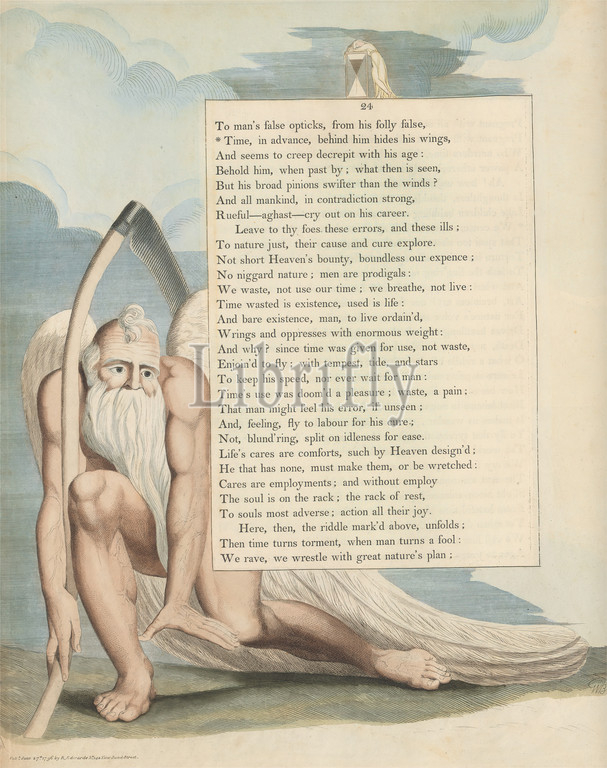 24
To man's false opticks, from his folly false,
* Time, in advance, behind him hides his wings,
And seems to creep decrepit with his age :
Behold him, when past by ; what then is seen,
But his broad pinions swifter than the winds ?
And all mankind, in contradiction strong,
Rueful—aghast—cry out on his career.
Leave to thy foes these errors, and these ills ;
To nature just, their cause and cure explore.
Not short Heaven's bounty, boundless our expence ;
No niggard nature ; men are prodigals :
We waste, not use our time ; we breathe, not live :
Time wasted is existence, used is life :
And bare existence, man, to live ordain'd,
Wrings and oppresses with enormous weight :
And why? since time was given for use, not waste,
Enjoin'd to fly ; with tempest, tide, and stars
To keep his speed, nor ever wait for man :
Time's use was doom'd a pleasure ; waste, a pain ;
That man might feel his error, if unseen ;
And, feeling, fly to labour for his cure ;
Not, blund'ring, split on idleness for ease.
Life's cares are comforts, such by Heaven design'd ;
He that has none, must make them, or be wretched :
Cares are employments ; and without employ
The soul is on the rack ; the rack of rest,
To souls most adverse ; action all their joy.
Here, then, the riddle mark'd above, unfolds ;
Then time turns torment, when man turns a fool :
We rave, we wrestle with great nature's plan ;
Librifly